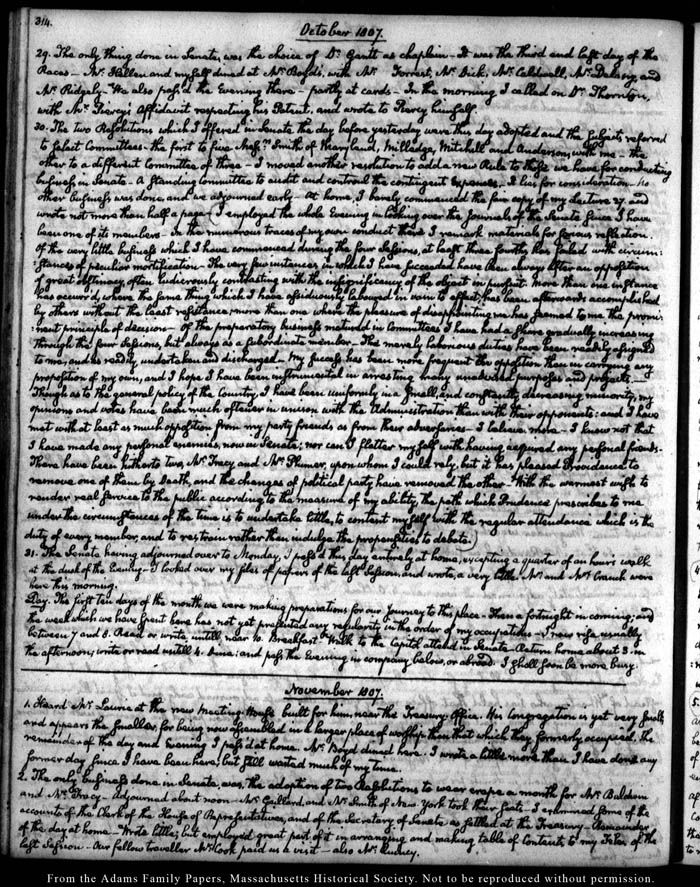 314.
October 1807.
29. The only thing done in Senate, was the choice of Dr. Gantt as chaplain. It was the third and last day of the
Races — Mr. Hellen and myself dined at Mr. Boyd's, with Mr. Forrest, Mr. Dick, Mr. Caldwell, Mr. Delany, and
Mr. Ridgely. We also pass'd the Evening there — partly at cards — In the morning I called on Dr. Thornton,
with Mr. Piercy's Affidavit respecting his Patent, and wrote to Piercy himself.
30. The two Resolutions which I offered in Senate the day before yesterday were this day adopted and the subjects referred
to select Committees — the first to five Messrs. Smith of Maryland, Milledge, Mitchill and Anderson, with me — the
other to a different Committee of three — I moved another resolution to add a new Rule to those we have for conducting
business in Senate — A standing Committee to audit and controul the contingent Expences — It lies for consideration — No
other business was done, and we adjourned early — At home, I barely commenced the fair copy of my lecture 27. and
wrote not more than half a page — I employed the whole Evening in looking over the Journals of the Senate since I have
been one of its members — In the numerous traces of my own conduct there I remark materials for serious reflection.
Of the very little business which I have commenced during the four Sessions, at least three fourths has failed with circum:
stances of peculiar mortification — The very few instances in which I have succeeded have been always after an opposition
of great obstinacy, often ludicrously contrasting with the insignificancy of the object in pursuit. More than one instance
has occurr'd, where the same thing which I have assiduously laboured in vain to effect, has been afterwards accomplished
by others without the least resistance; more than one where the pleasure of disappointing me has seemed to me the promi:
nent principle of decision — Of the preparatory business matured in Committees I have had a share gradually increasing
through the four Sessions, but always as a subordinate member — The merely laborious duties have been readily assigned
to me, and as readily undertaken and discharged — My success has been more frequent in opposition than in carrying any
proposition of my own, and I hope I have been instrumental in arresting many unadvised purposes and projects. —
Though as to the general policy of the Country, I have been uniformly in a small, and constantly decreasing minority, my
opinions and votes have been much oftener in unison with the Administration than with their opponents: and I have
met with at least as much opposition from my party friends as from their adversaries — I believe more — I know not that
I have made any personal enemies, now in Senate; nor can I flatter myself with having acquired any personal friends.
There have been hitherto two, Mr. Tracy and Mr. Plumer, upon whom I could rely, but it has pleased Providence to
remove one of them by Death, and the changes of political party have removed the other. With the warmest wish to
render real service to the public according to the measure of my ability, the path which Prudence prescribes to me
under the circumstances of the time is to undertake little, to content myself with the regular attendance which is the
duty of every member, and to restrain rather than indulge the propensities to debate.
31. The Senate having adjourned over to Monday, I pass'd this day entirely at home, excepting a quarter of an hour's walk
at the dusk of the Evening — I looked over my files of papers of the last Session, and wrote, a very little. Mr. and Mrs. Cranch were
here this morning.
Day. The first ten days of the month we were making preparations for our journey to this place — Then a fortnight in coming; and
the week which we have spent here has not yet presented any regularity in the order of my occupations — I now rise usually
between 7 and 8. Read or write untill near 10. Breakfast. Walk to the Capitol, attend in Senate. Return home about 3 in
the afternoon; write or read untill 4. dine: and pass the Evening in company below, or abroad. I shall soon be more busy.
November 1807.
1. Heard Mr. Laurie at the new Meeting House built for him, near the Treasury Office. His Congregation is yet very small,
and appears the smaller, for being now assembled in a larger place of worship than that which they formerly occupied. The
remainder of the day and Evening I pass'd at home. Mr. Boyd dined here. I wrote a little more than I have done any
former day since I have been here; but still wasted much of my time.
2. The only business done in Senate, was the adoption of two Resolutions to wear crape a month for Mr. Baldwin
and Mr. Tracy. Adjourned about noon — Mr. Gaillard, and Mr. Smith of New York took their seats. I examined some of the
accounts of the Clerk of the House of Representatives, and of the Secretary of Senate as settled at the Treasury — Remainder
of the day at home — Wrote little; but employed great part of it in arranging and making table of Contents to my files of the
last Session — Our fellow traveller Mr. Cook paid us a visit — also Mr. Quincy.
From the Adams Family Papers, Massachusetts Historical Society. Not to be reproduced without permission.